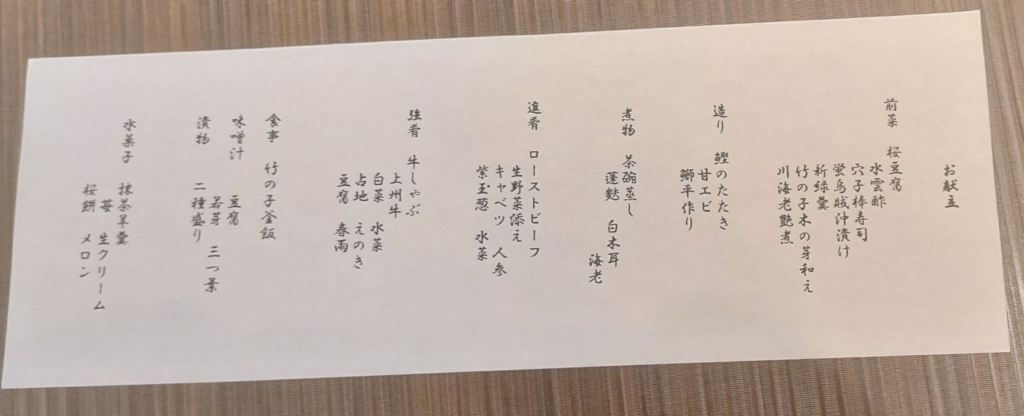 お献立
前菜 桜豆腐
水雲酢
穴子棒寿司
蛍烏賊沖漬け
新緑羹
竹の子木の芽和え
川海老艶煮
造り 鰹のたたき
甘エビ
鰤平作り
煮物 茶碗蒸し
蓬麩 白木耳
海老
進肴 ローストビーフ
生野菜添え
キャベツ 人参
紫玉葱 水菜
強肴 牛しゃぶ
上州牛
白菜 水菜
占地 えのき
豆腐 春雨
食事 竹の子釜飯
味噌汁 豆腐
若芽 三つ葉
漬物 二種盛り
水菓子 抹茶羊羹
苺 生クリーム
桜餅 メロン